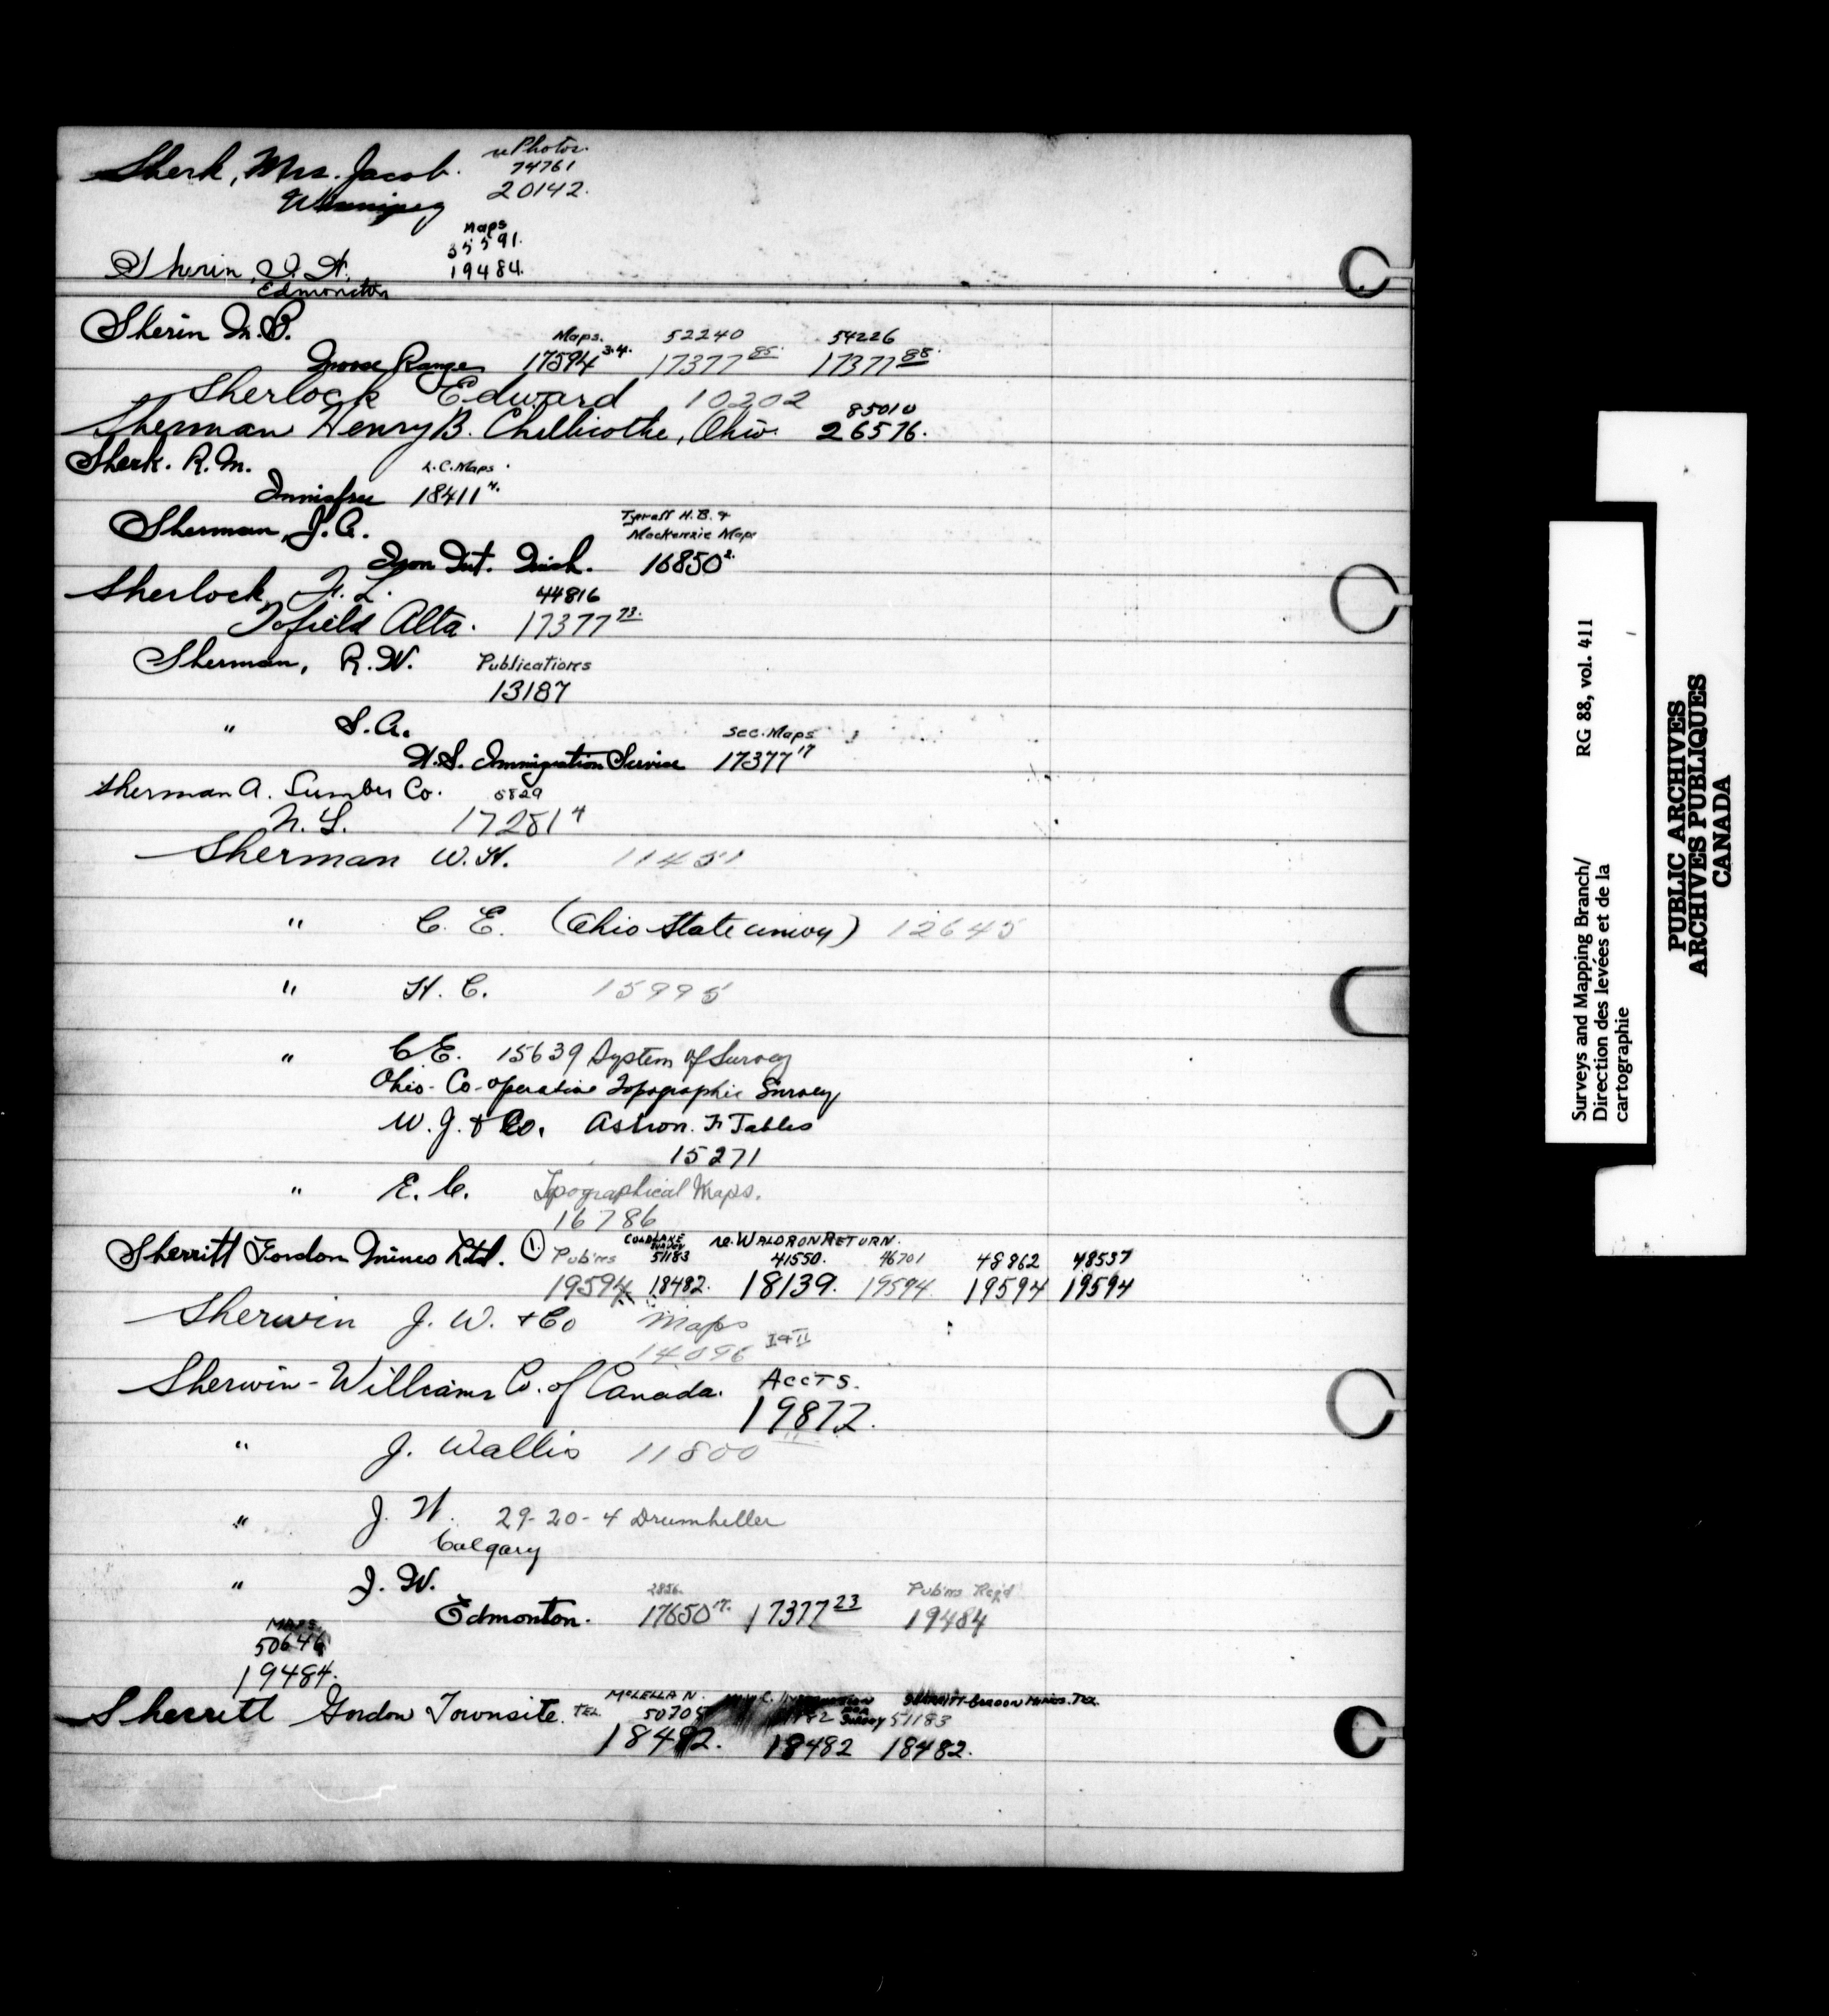 Sherk, Mrs. Jacob. re Photos.
74761
Winnipeg 20142.
Maps
35591.
Sherin, I. H. 19484.
Edmonton
Sherin M. B. Maps. 52240 54226
Moose Range 17594 3.4. 17377 85. 17377 88.
Sherlock Edward 10202
85010
Sherman Henry B. Chillicothe, Ohio. 26576.
Sherk. R. M. L.C. Maps.
Innisfree 18411 4.
Sherman, J. A. Tyrrell H.B. &
Mackenzie Maps
Iron Mt. Mich. 16850 2.
Sherlock, F. L. 44816
Tofield Alta. 17377 73.
Sherman, R. W. Publications
13187
" S. A. Sec. Maps
U.S. Immigration Service 17377 17
Sherman A. Lumber Co. 5829
N.Y. 17281 4
Sherman W. H. 11451
" C. E. (Ohio State univy) 12645
" H. C. 15995
" C. E. 15639 System of Survey
Ohio-Co-operative Topographic Survey
W. J. & Co. Astron. F. Tables
15271
" E. C. Topographical Maps.
16786
Sherritt Gordon Mines Ltd. 1. Pub'ns COLD LAKE SURVEY 51183 re. WALDRON RETURN. 41550. 46701 48862 48537
19594 18482. 18139. 19594 19594 19594
Sherwin J. W. & Co Maps
14096 I & II
Sherwin-Williams Co. of Canada. ACCTS.
19872.
" J. Wallis 11800
" J. W. 29-20-4 Drumheller
Calgary
" J. W. 2856. Pub'ns Req'd
Edmonton. 17650 17. 17377 23 19484
MAPS
50646
19484.
McLELLAN. SHERRITT-GORDON MINES. TEL.
Sherritt Gordon Townsite. TEL. 50705 Survey 51183
18482. 18482 18482.
Surveys and Mapping Branch/ RG 88, vol. 411
Direction des levées et de la
cartographie
PUBLIC ARCHIVES
ARCHIVES PUBLIQUES
CANADA